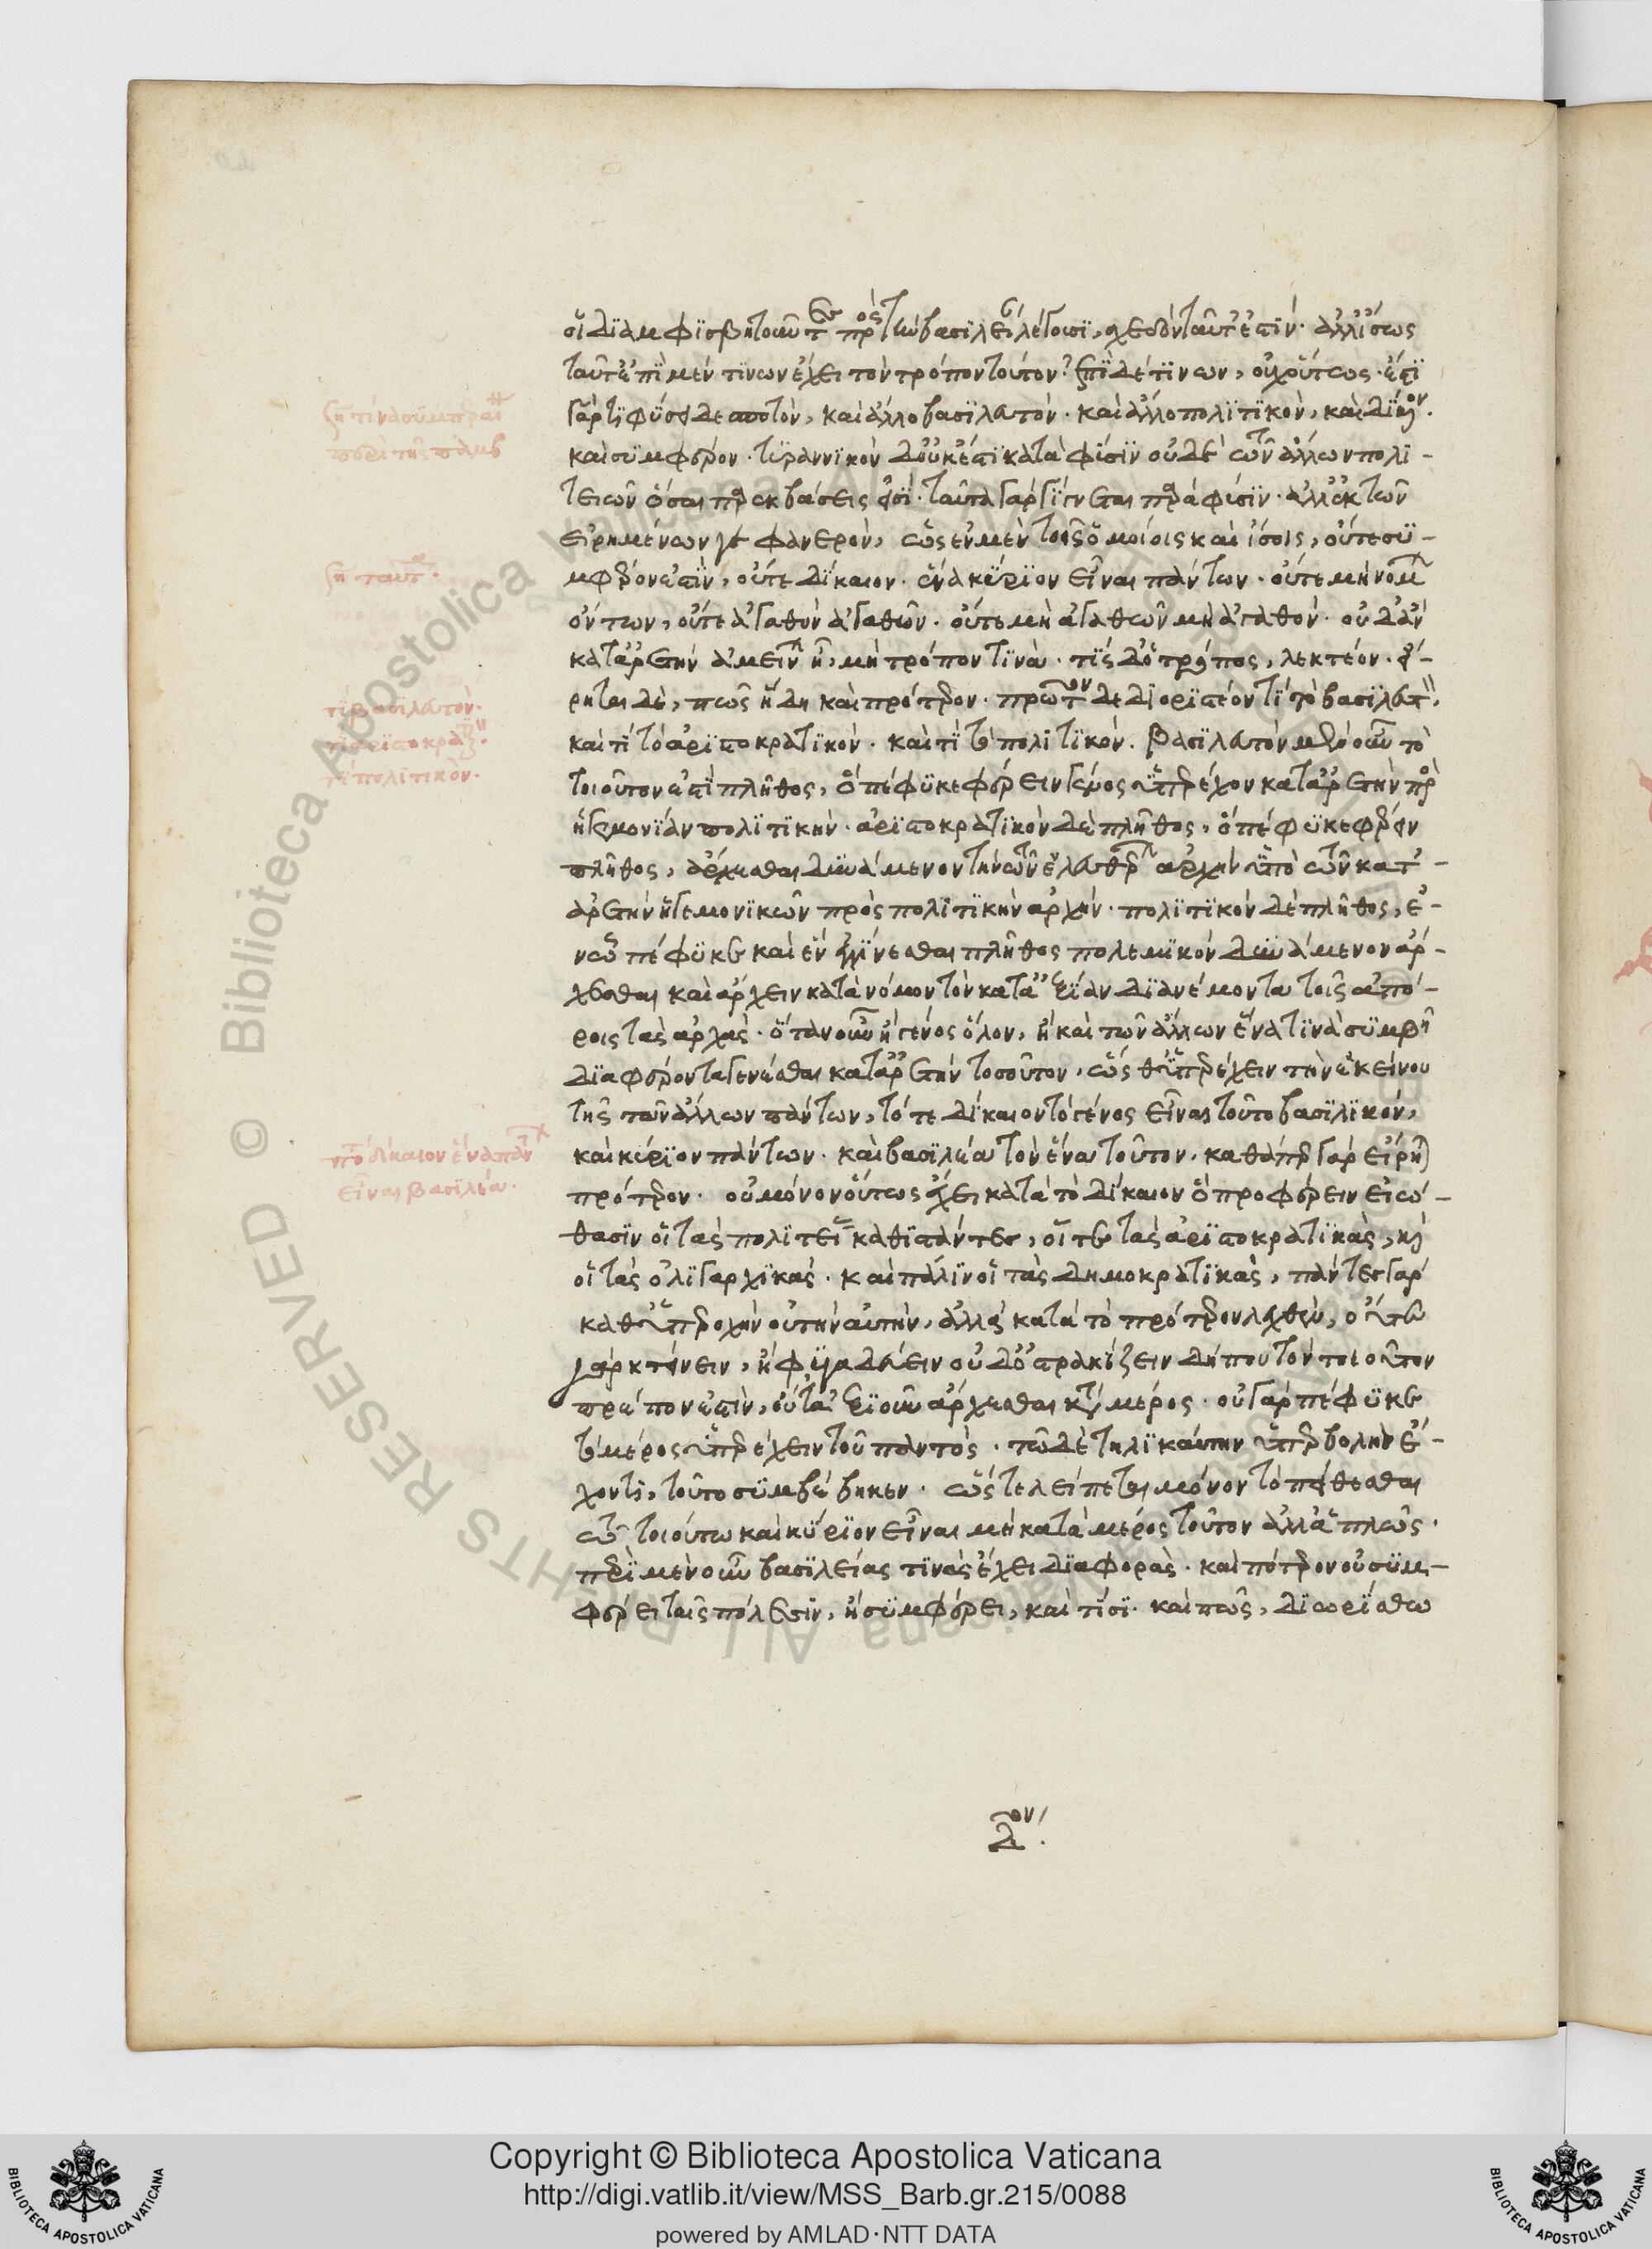 οἱ διαμφισβητοῦντες πρὸς τὴν βασιλείαν λέγουσι, σχεδὸν ταῦτ' ἐστίν. ἀλλ' ἴσως
ταῦτ' ἐπὶ μέν τινων ἔχει τὸν τρόπον τοῦτον. ἐπὶ δέ τινων, οὐχ οὕτως. ἔστι
γάρ τι φύσει δεσποτὸν, καὶ ἄλλο βασιλευτόν. καὶ ἄλλο πολιτικὸν, καὶ δίκαιον.
καὶ συμφέρον. τυραννικὸν δ' οὐκ ἔστι κατὰ φύσιν οὐδὲ τῶν ἄλλων πολι-
τειῶν ὅσαι παρεκβάσεις εἰσί. ταῦτα γὰρ γίγνεται παρὰ φύσιν. ἀλλ' ἐκ τῶν
εἰρημένων γε φανερὸν, ὡς ἐν μὲν τοῖς ὁμοίοις καὶ ἴσοις, οὔτε συ-
μφέρον ἐστὶν, οὔτε δίκαιον. ἕνα κύριον εἶναι πάντων. οὔτε μὴ νόμων
ὄντων, οὔτε ἀγαθὸν ἀγαθῶν. οὔτε μὴ ἀγαθῶν μὴ ἀγαθόν. οὐδ' ἂν
κατ' ἀρετὴν ἀμείνων ᾖ, μὴ τρόπον τινά. τίς δ' ὁ τρόπος, λεκτέον. εἴ-
ρηται δὲ, πως ἤδη καὶ πρότερον. πρῶτον δὲ διοριστέον τί τὸ βασιλευτὸν,
καὶ τί τὸ ἀριστοκρατικόν. καὶ τί τὸ πολιτικόν. βασιλευτὸν μὲν οὖν τὸ
τοιοῦτον ἐστὶ πλῆθος, ὃ πέφυκε φέρειν γένος ὑπερέχον κατ' ἀρετὴν πρὸς
ἡγεμονίαν πολιτικήν. ἀριστοκρατικὸν δὲ πλῆθος, ὃ πέφυκε φέρειν
πλῆθος, ἄρχεσθαι δυνάμενον τὴν τῶν ἐλευθέρων ἀρχὴν ὑπὸ τῶν κατ'
ἀρετὴν ἡγεμονικῶν πρὸς πολιτικὴν ἀρχήν. πολιτικὸν δὲ πλῆθος, ἐ-
ν ᾧ πέφυκε καὶ ἓν ἐγγίνεσθαι πλῆθος πολεμικόν δυνάμενον ἄρ-
χεσθαι καὶ ἄρχειν κατὰ νόμον τὸν κατ' ἀξίαν διανέμοντα τοῖς ἀπό-
ροις τὰς ἀρχάς. ὅταν οὖν ἢ γένος ὅλον, ἢ καὶ τῶν ἄλλων ἕνα τινὰ συμβῇ
διαφέροντα γενέσθαι κατ' ἀρετὴν τοσοῦτον, ὥσθ' ὑπερέχειν τὴν ἐκείνου
τῆς τῶν ἄλλων πάντων, τότε δίκαιον τὸ γένος εἶναι τοῦτο βασιλικόν,
καὶ κύριον πάντων. καὶ βασιλέα τὸν ἕνα τοῦτον. καθάπερ γὰρ εἴρηται
πρότερον. οὐ μόνον οὕτως ἔχει κατὰ τὸ δίκαιον ὃ προφέρειν εἰώ-
θασιν οἱ τὰς πολιτείας καθιστάντες, οἵ τε τὰς ἀριστοκρατικὰς, καὶ
οἱ τὰς ὀλιγαρχικάς. καὶ πάλιν οἱ τὰς δημοκρατικὰς, πάντες γὰρ
καθ' ὑπεροχὴν οὐ τὴν αὐτὴν, ἀλλὰ κατὰ τὸ πρότερον λεχθέν, οὔτε
γὰρ κτείνειν, ἢ φυγαδεύειν οὐδ' ὀστρακίζειν δήπου τὸν τοιοῦτον
πρέπον ἐστὶν, οὔτ' ἀξιοῦν ἄρχεσθαι κατὰ μέρος. οὐ γὰρ πέφυκε
τὸ μέρος ὑπερέχειν τοῦ παντός. τῷ δὲ τηλικαύτην ὑπερβολὴν ἔ-
χοντι, τοῦτο συμβέβηκεν. ὥστε λείπεται μόνον τὸ πείθεσθαι
τῷ τοιούτῳ καὶ κύριον εἶναι μὴ κατὰ μέρος τοῦτον ἀλλ' ἁπλῶς.
περὶ μὲν οὖν βασιλείας τίνας ἔχει διαφοράς. καὶ πότερον οὐ συμ-
φέρει ταῖς πόλεσιν, ἢ συμφέρει, καὶ τίσι. καὶ πῶς, διωρίσθω
τί βασιλευτόν.
τί ἀριστοκρατικόν.
τί πολιτικόν.
πότε δίκαιον ἕνα πάντων
εἶναι βασιλέα.
Copyright © Biblioteca Apostolica Vaticana
http://digi.vatlib.it/view/MSS_Barb.gr.215/0088
powered by AMLAD·NTT DATA
BIBLIOTECA APOSTOLICA VATICANA
BIBLIOTECA APOSTOLICA VATICANA